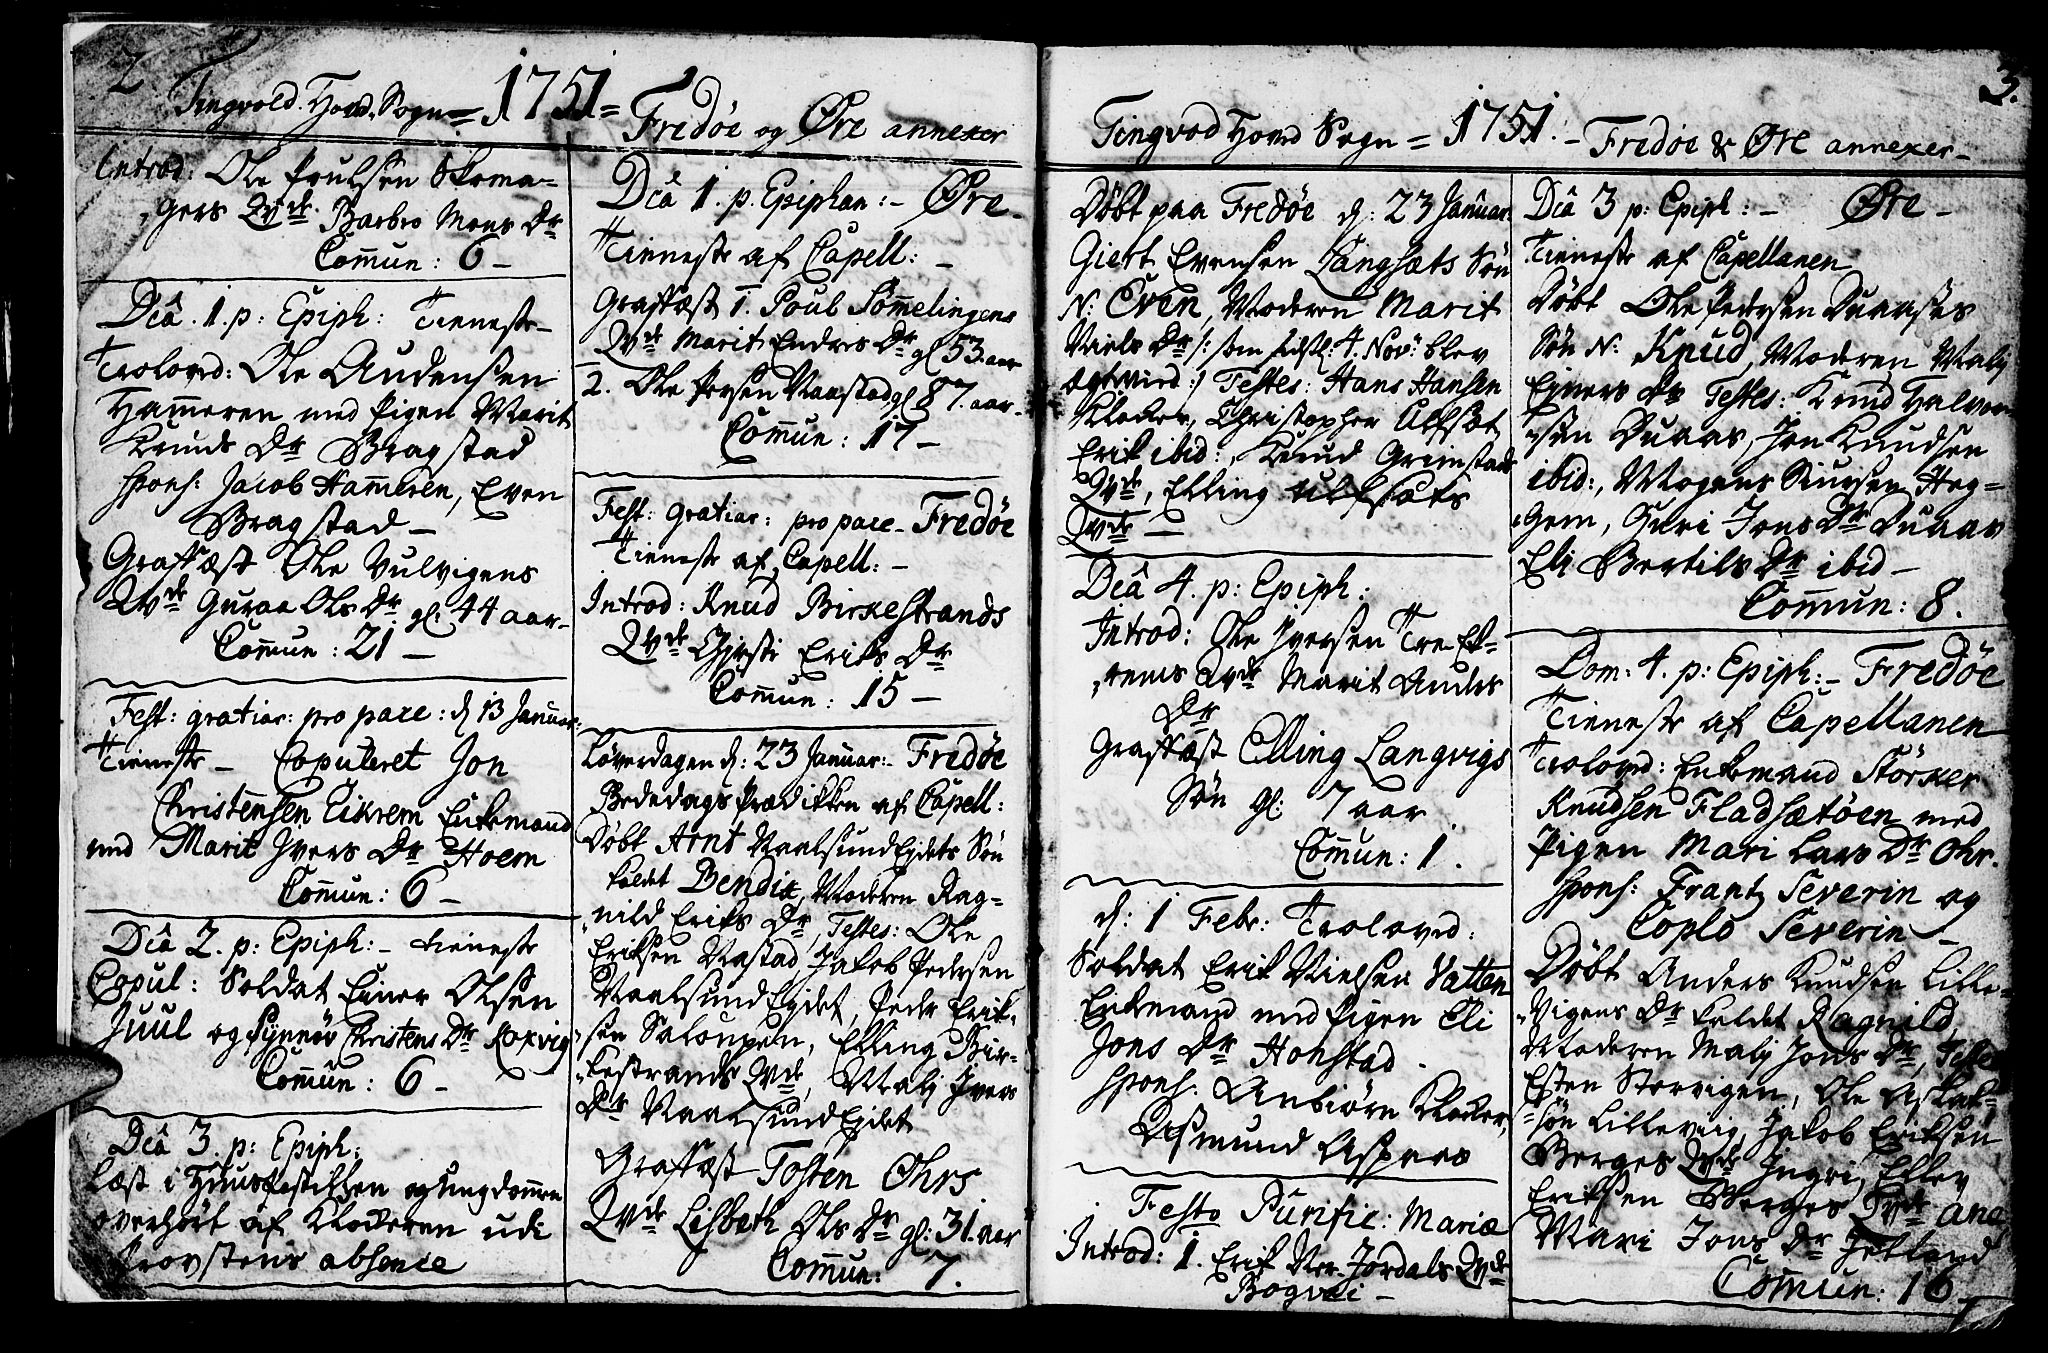 2
Tingvold Hoved Sogn = 1751 =
Fredøe og Øre annexer
Introd: Ole Poulsen Skoma-
gers Qvde. Barbro Mons Dr
Commun: 6 -
Diâ. 1. p: Epiph: Tieneste-
Trolovd: Ole Audensen
Hammeren med Pigen Marit
Knuds Dr Bragstad
spons: Jacob Hammeren, Even
Bragstad -
Graffæst Ole Vulvigens
Qvde Guraa Ols Dr. gl: 44 aar-
Commun: 21 -
Fest: gratiar: pro pace: d 13 Januar:
Tieneste - Copuleret Jon
Christensen Eikrem Enkemand
med Marit Ivers Dr Hoem
Commun: 6 -
Diâ 2. p: Epiph: - tieneste
Copul: Soldat Einer Olsen
Juul og Synnøv Christens Dr Roxvig
Commun: 6 -
Diâ 3. p: Epiph:
Læst i Huuspostillen og ungdommen
overhört af Klokeren udi
Provstens absence
Diâ 1. p. Epiphan: - Øre -
Tieneste af Capell: -
Graffæst 1. Poul Sømmelingens
Qvde Marit Endres Dr gl 53 aar
2. Ole Naastad gl 87. aar-
Commun: 17 -
Fest: gratiar: pro pace - Fredöe
Tieneste af Capell: -
Introd: Knud Birkestrands
Qvde Eriks Dr
Commun: 15 -
Løverdagen d: 23 Januar: - Fredöe
Bededags Prædikken af Capell:
Döbt Arnt Naalsund Eydets Sön
kaldet Bendix, Moderen Rag-
nild Eriks Dr, Testes: Ole
Eriksen Nastad, Jakob Pedersen
Naalsund Eydet, Peder Erik-
sen Elling Bir-
kestrands Qvde, Malj Ivers
Dr Naalsund Eydet
Graffæst Tosten Øhrs
Qvde Lisbeth Ols Dr gl: 31. aar
Commun: 7.
3.
Tingvod Hoved Sogn = 1751. - Fredöe & Øre annexer -
Döbt paa Fredöe d: 23 Januar.
Giert Evensen Langsæts Sön
N: Even, Moderen Marit
Niels Dr /: som sidstl: 4. Nov: blev
ægtevied :/ Testes: Hans Hansen
Kloker, Christopher Ulfsöt
Erik ibid:, Knud Grimstads
Qvde, Elling Ulfsøts
Qvde -
Diâ 4. p: Epiph:
Introd: Ole Iversen Tre Ek-
rems Qvde Marit Anders
Dr
Graffæst Elling Langvigs
Sön gl: 7 aar
Commun: 1.
d: 1 Febr: Trolovd:
Soldat Erik Nielsen Vatten
Enkemand med Pigen Eli
Jons Dr Honstad.
spons. Anbiörn Kloker,
Asmund Aspaas
Festo Purific: Mariæ
Introd: 1. Erik Ner. Jordals Qvde
Bogvei -
Diâ 3 p: Epiph: - Øre -
Tieneste af Capellanen
Döbt Ole Pedersen Duaases
Sön N: Knud, Moderen Malj
Einers Dr Testes: Knud Halvor-
sen Duaas, Jon Knudsen
ibid:, Mogens Siursen Heg-
gem, Guri Jons Dr Duaas
Eli Bertils Dr ibid -
Commun: 8.
Dom: 4. p: Epiph: - Fredöe
Tieneste af Capellanen
Trolovd: Enkemand Störker
Knudsen Fladsætöen med
Pigen Mari Lars Dr Ohr.
spons: Frantz Severin og
Severin -
Döbt Anders Knudsen Lille-
vigens Dr kaldet Ragnild,
Moderen Malj Jons Dr, Testes
Esten Storvigen, Ole Aslak-
sön Lilleviig, Jakob Eriksen
Berges Qvde Ingri, Ellev
Eriksen Berges Qvde Ane
Mari Jons Dr Jetland
Commun: 16